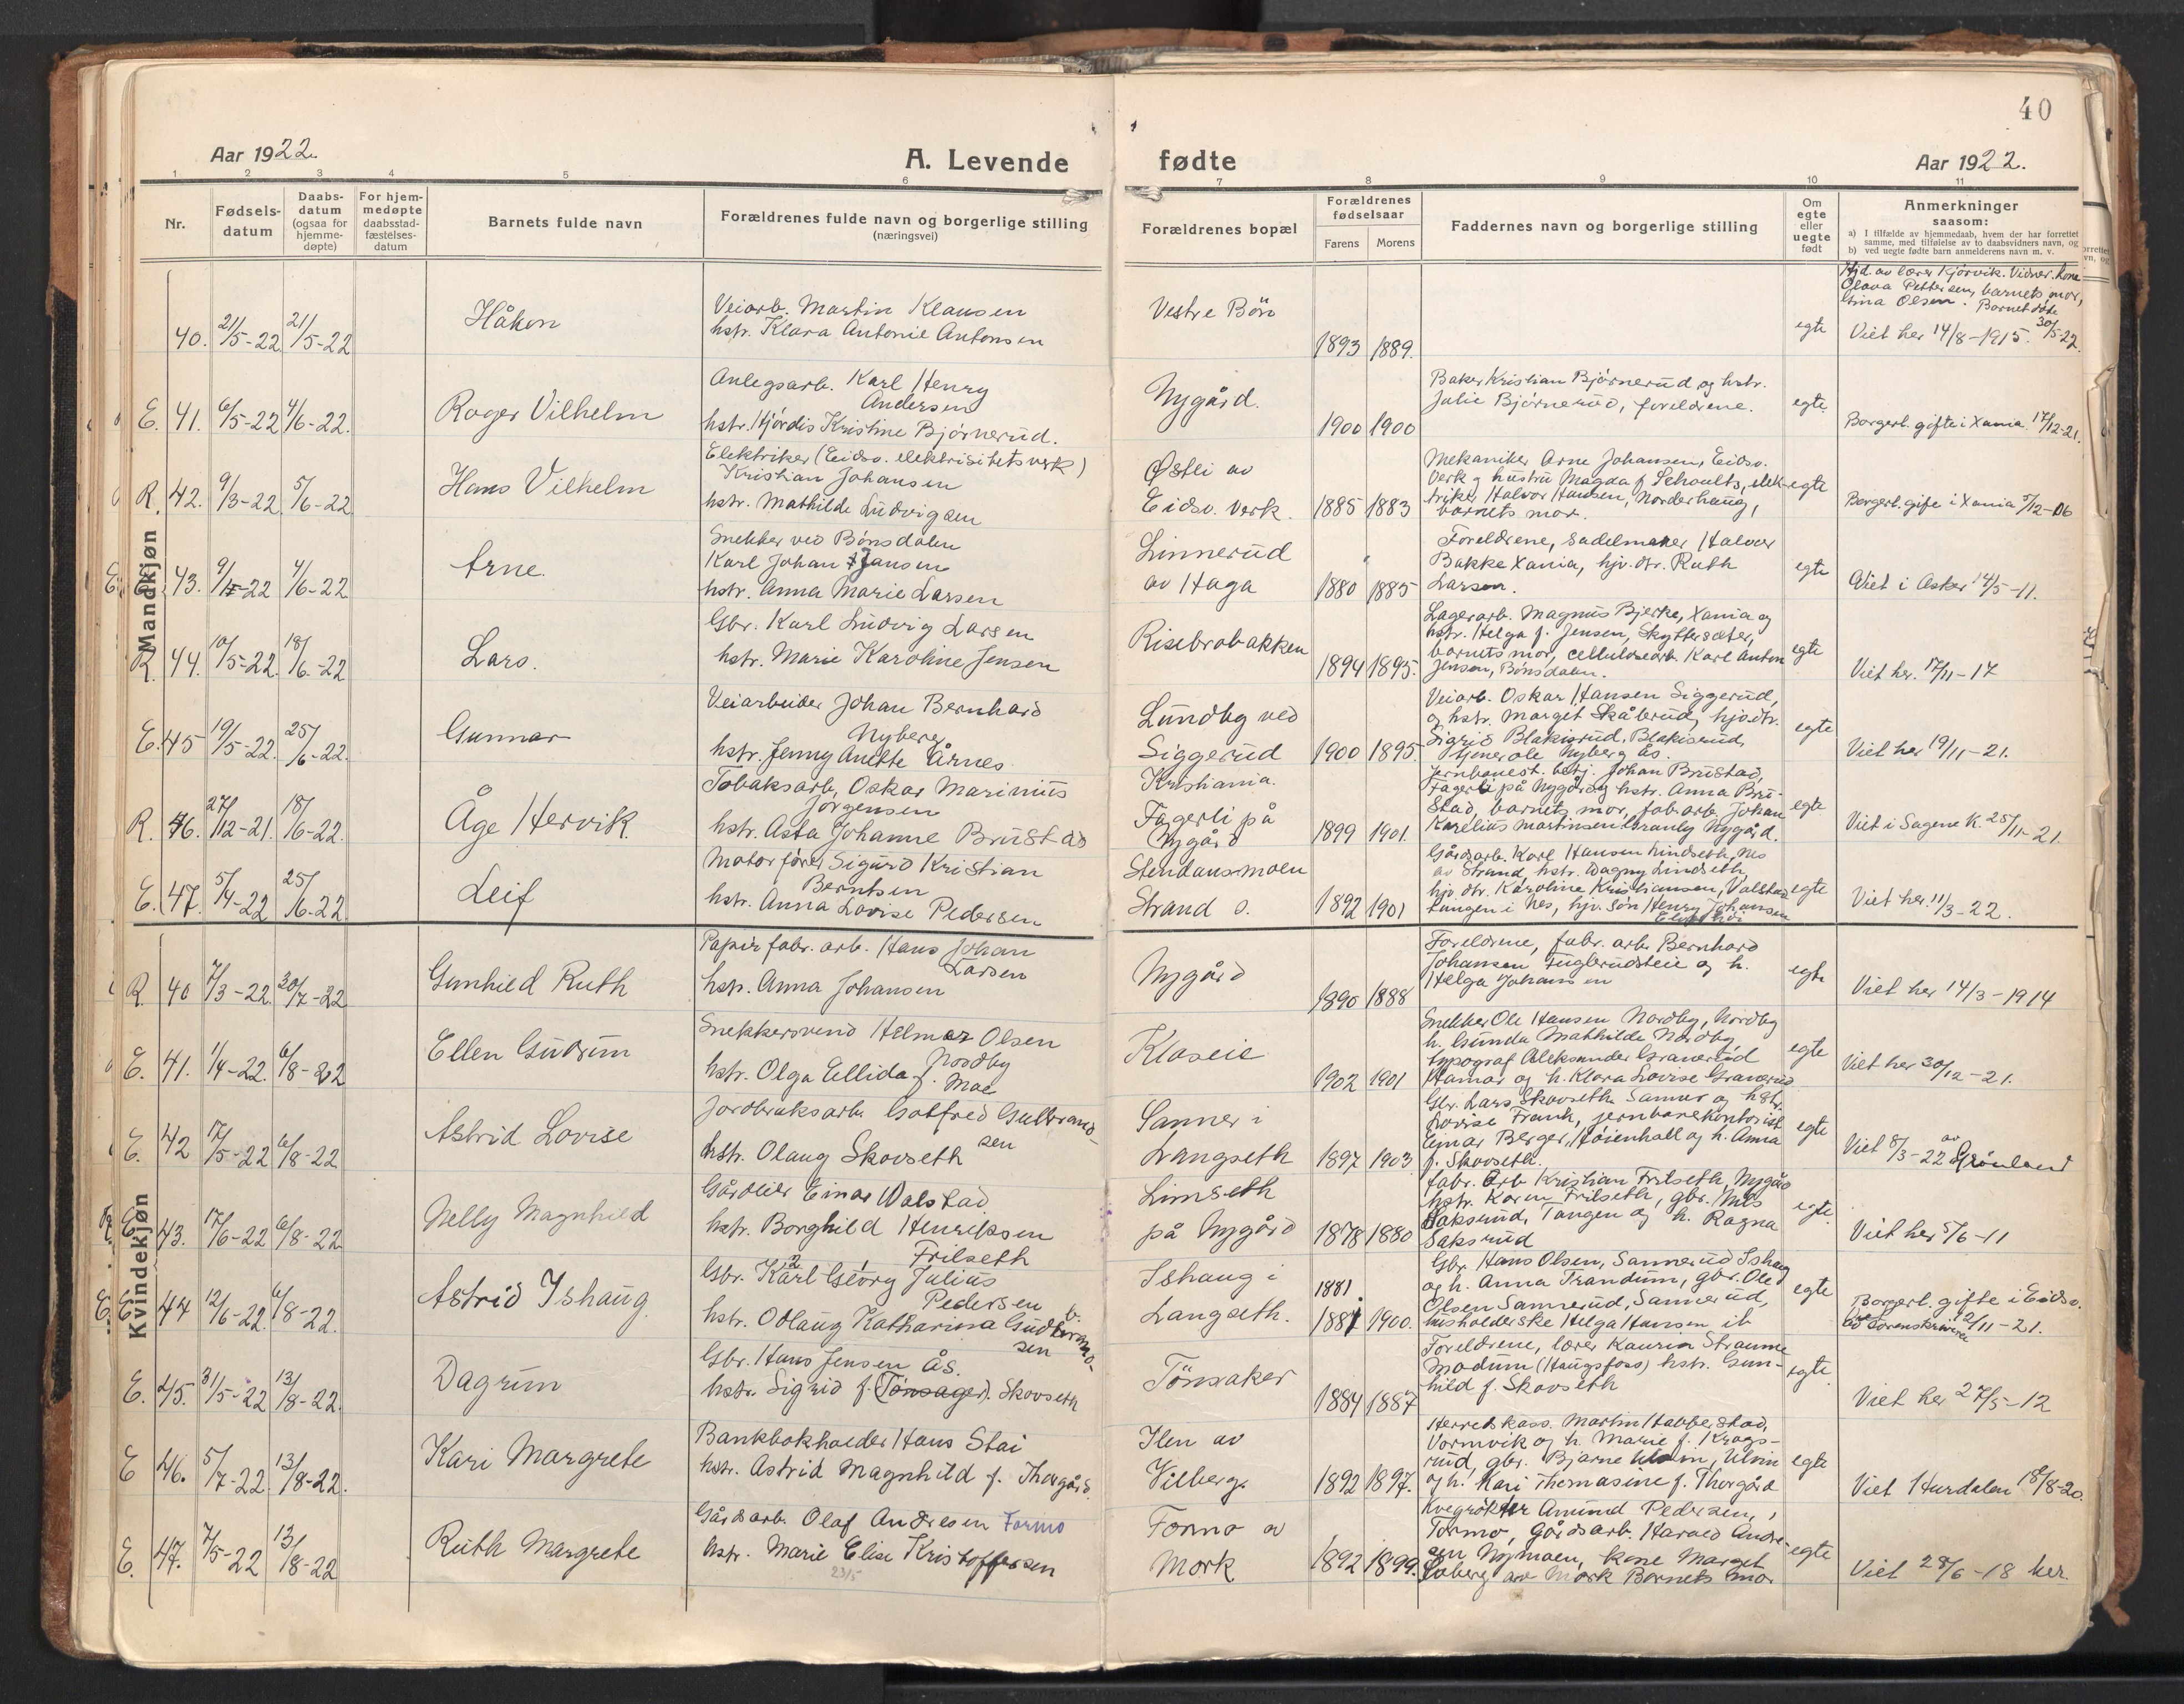 40
Aar 1922.
A. Levende
fødte
Aar 1922.
1
2
3
4
5
6
7
8
9
10
11
Nr.
Fødsels-
datum
Daabs-
datum
(ogsaa for
hjemme-
døpte)
For hjem-
medøpte
daabsstad-
fæstelses-
datum
Barnets fulde navn
Forældrenes fulde navn og borgerlige stilling
(næringsvei)
Forældrenes bopæl
Forældrenes
fødselsaar
Farens
Morens
Faddernes navn og borgerlige stilling
Om
egte
eller
uegte
født
Anmerkninger
saasom:
a) I tilfælde av hjemmedaab, hvem der har forrettet
samme, med tilføielse av to daabsvidners navn, og
b) ved uegte fødte barn anmelderens navn m. v.
Mandkjøn
40. 21/5-22 21/5-22
Håkon
Veiarb. Martin Klausen
hstr. Klara Antonie Antonsen
Vestre Bön
1893 1889.
egte
Hjd. av lærer Kjörvik. Vidner: kone
Olava Pettersen, barnets mor,
Stina Olsen. Barnet døde
30/5-22.
Viet her 14/8-1915.
E. 41. 6/5-22 4/6-22.
Roger Vilhelm
Anlegsarb. Karl Henry
Andersen
hstr. Hjördis Kristine Bjórnerud.
Nygård.
1900 1900
Baker Kristian Bjórnerud og hstr.
Julie Bjórnerud, foreldrene.
egte
Borgerl. gifte i Xania 17/12-21.
R. 42. 9/3-22 5/6-22
Hans Vilhelm
Elektriker (Eidsv. elektrisitetsverk)
Kristian Johansen
hstr. Mathilde Ludvigsen
Østli av
Eidsv. Verk.
1885 1883
Mekaniker Arne Johansen, Eidsv.
Verk og hustru Magda f. Schoultz, elek-
triker Halvor Hansen, Norderhaug,
barnets mor.
egte
Borgerl. gifte i Xania 5/12-06
E. 43. 9/4-22 4/6-22
Arne.
Snekker ved Bönsdalen
Karl Johan Jansen
hstr. Anna Marie Larsen
Linnerud
av Haga
1880 1885
Foreldrene, sadelmaker Halvor
Bakke Xania, hjv. dtr. Ruth
Larsen.
egte
Viet i Asker 14/5-11.
R. 44. 10/5-22. 18/6-22
Lars.
Gbr. Karl Ludvig Larsen
hstr. Marie Karoline Jensen
Risebrobakken
1894 1895.
Lagerarb. Magnus Bjerke, Xania og
hstr. Helga f. Jensen, Skyttersæter,
barnets mor, cellulosearb. Karl Anton
Jensen, Bönsdalen.
egte
Viet her. 17/11-17
E. 45 19/5-22. 25/6-22.
Gunnar
Veiarbeider Johan Bernhard
Nyberg
hstr. Jenny Anette Årnes.
Lundby ved
Siggerud
1900 1895.
Veiarb. Oskar Hansen Siggerud,
og hstr. Marget Skålerud, hjv. dtr.
Sigrid Blakisrud, Blakisrud,
tjener Ole Nyberg Ås.
egte
Viet her 19/11-21.
R. 46. 27/12-21. 18/6-22.
Åge Hervik
Tobaksarb. Oskar Marinius
Jörgensen
hstr. Asta Johanne Brustad
Kristiania.
Fagerli på
Nygård
1899 1901.
Jernbanest. betj. Johan Brustad,
Fagerli på Nygård og hstr. Anna Bru-
stad, barnets mor, fab. arb. Johan
Karelius Martinsen Granly Nygård.
egte
Viet i Sagene K. 25/11-21.
E. 47. 5/4-22 25/6-22
Leif
Motorfører Sigurd Kristian
Berntsen
hstr. Anna Lovise Pedersen
Stendansmoen
Strand s.
1892 1901
Gårdsarb. Karl Hansen Lindseth, Nes
av Strand, hstr. Dagny Lindseth,
hjv. dtr. Karoline Kristiansen, Valstad-
tangen i Nes, hjv. søn Henry Johansen
egte
Viet her. 11/3-22.
Kvindekjøn
R. 40 7/3-22. 30/7-22
Gunhild Ruth
Papirfabr. arb. Hans Johan
Larsen
hstr. Anna Johansen
Nygård
1890 1888
Foreldrene, fabr. arb. Bernhard
Johansen Fuglerudsteie og h.
Helga Johansen
egte
Viet her 14/3-1914
E. 41. 1/4-22. 6/8-22
Ellen Gudrun
Snekkersvend Helmer Olsen
Nordby
hstr. Olga Ellida f. Moe
Kloseie
1902 1901
Snekker Ole Hansen Nordby, Nordby
h. Gunda Mathilde Nordby,
typograf Aleksander Graverud
Hamar og h. Klara Lovise Graverud
egte
Viet her 30/12-21.
E. 42 17/5-22 6/8-22
Astrid Lovise
Jordbruksarb. Gotfred Gulbrand-
sen
hstr. Olaug Skovseth
Sanner i
Langseth
1897 1903
Gbr. Lars Skovseth Sanner og hstr.
Lovise Frank, jernbanekontorist
Einar Berger, Höienhall og h. Anna
f. Skovseth.
egte
Viet 8/3-22 av Grönland
E. 43. 17/6-22 6/8-22
Nelly Magnhild
Gårdeier Einar Valstad
hstr. Borghild Henriksen
Frilseth
Limseth
på Nygård
1878 1880
fabr. arb. Kristian Frilseth, Nygård
hstr. Karen Frilseth, gbr. Nils
Saksrud, Tangen og h. Ragna
Saksrud
egte.
Viet her 5/6-11
E. 44 12/6-22. 6/8-22.
Astrid Ishaug.
Gbr. Karl Georg Julius
Pedersen
hstr. Odlaug Katharina Gudbrand-
sen
Ishaug i
Langseth.
1881.
1881 1900.
Gbr. Hans Olsen, Sannerud Ishaug
og h. Anna Trandum, gbr. Ole
Olsen Sannerud, Sannerud,
husholderske Helga Hansen ib
egte
Borgerl. gifte i Eidsv.
ved Sorenskriveren 12/11-21.
E. 45. 31/5-22 13/8-22.
Dagrun
Gbr. Hans Jensen Ås.
hstr. Sigrid f. (Tönsager). Skovseth
Tönsaker
1884 1887
Foreldrene, lærer Kaurin Straume
Modum (Haugsfoss) hstr. Gun-
hild f. Skovseth
egte.
Viet her 27/5-12
E 46. 5/7-22. 13/8-22.
Kari Margrete
Bankbokholder Hans Stai
hstr. Astrid Magnhild f. Thorgård.
Ilen av
Vilberg.
1892 1897.
Herredskass. Martin Habberstad,
Vormvik og h. Marie f. Krogs-
rud, gbr. Bjarne Ulvin, Ulvin
og h. Kari Thomasine f. Thorgård
egte
Viet Hurdalen 18/8-20.
E. 47. 7/5-22 13/8-22
Ruth Margrete
Gårdsarb. Olaf Andresen Formo
hstr. Marie Elise Kristoffersen
23/5
Formo av
Mork
1892 1899.
Kvegrökter Amund Pedersen,
Formo, Gårdsarb. Harald Andre-
sen Nymoen, kone Marget
Loberg av Mork Barnets mor
egte
Viet 28/6-18 her.